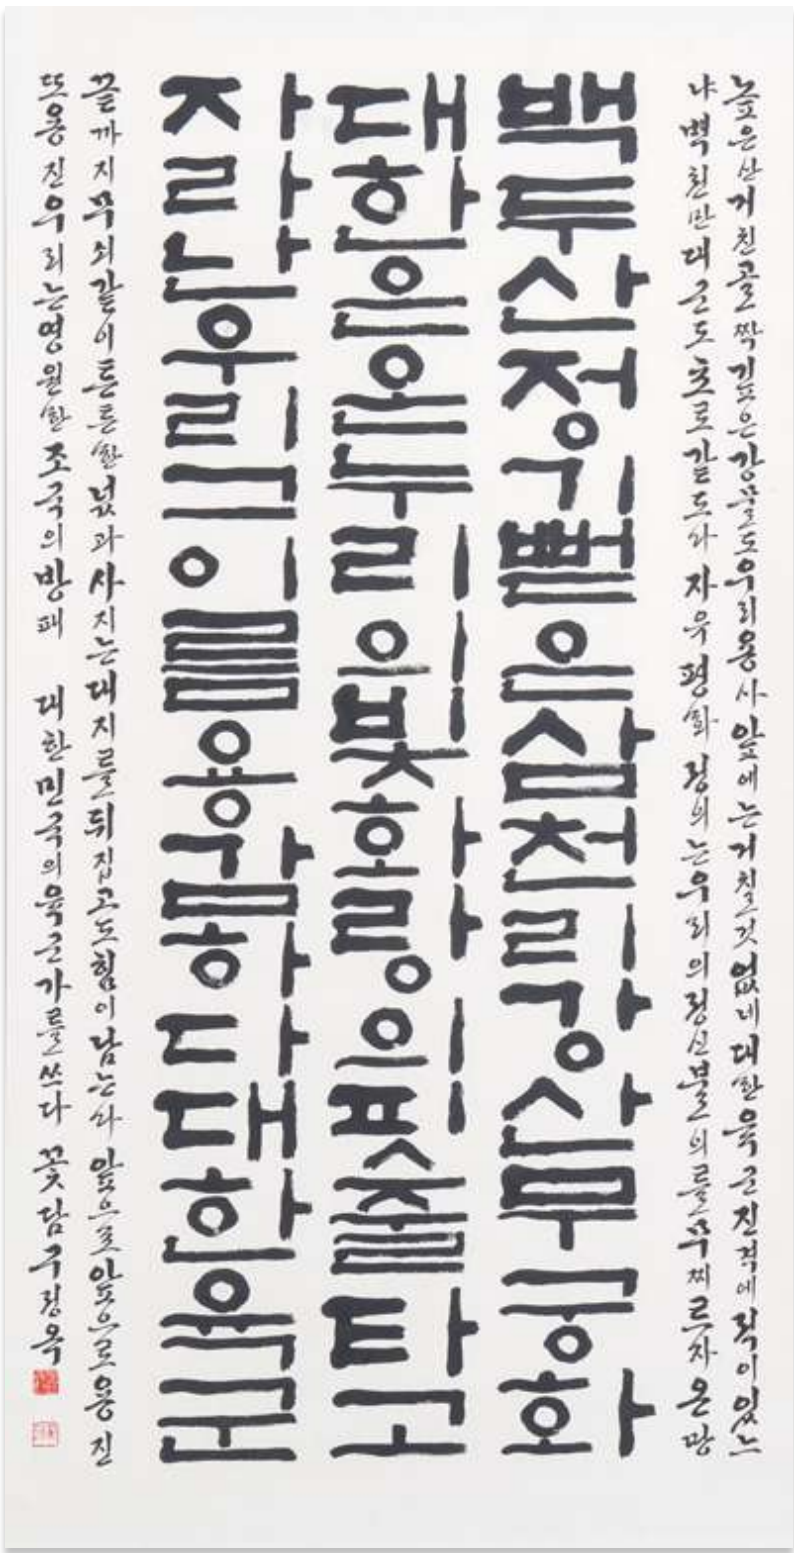 높은산거친골짝깊은강물도우리용사앞에는거칠것없네대한육군진격에적이있느
냐벽천만대군도초로같도다자유평화정의는우리의정신불의를무찌르자온땅
백두산정기뻗은삼천리강산무궁화
대한은온누리의빛화랑의핏줄타고
자라난우리그이름용감하다대한육군
끝까지무쇠같이튼튼한넋과사지는대지를뒤집고도힘이남는다 앞으로앞으로용진
또용진우리는영원한조국의방패 대한민국의육군가를쓰다 꽃담구정옥